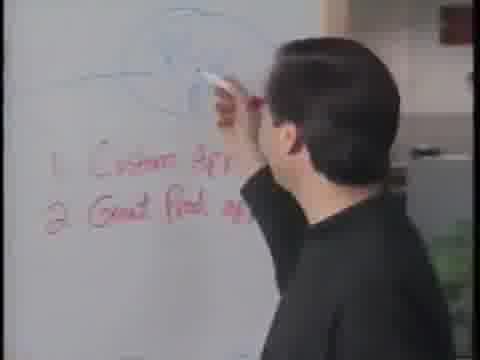 1. Custom App
2 Great Prod ap